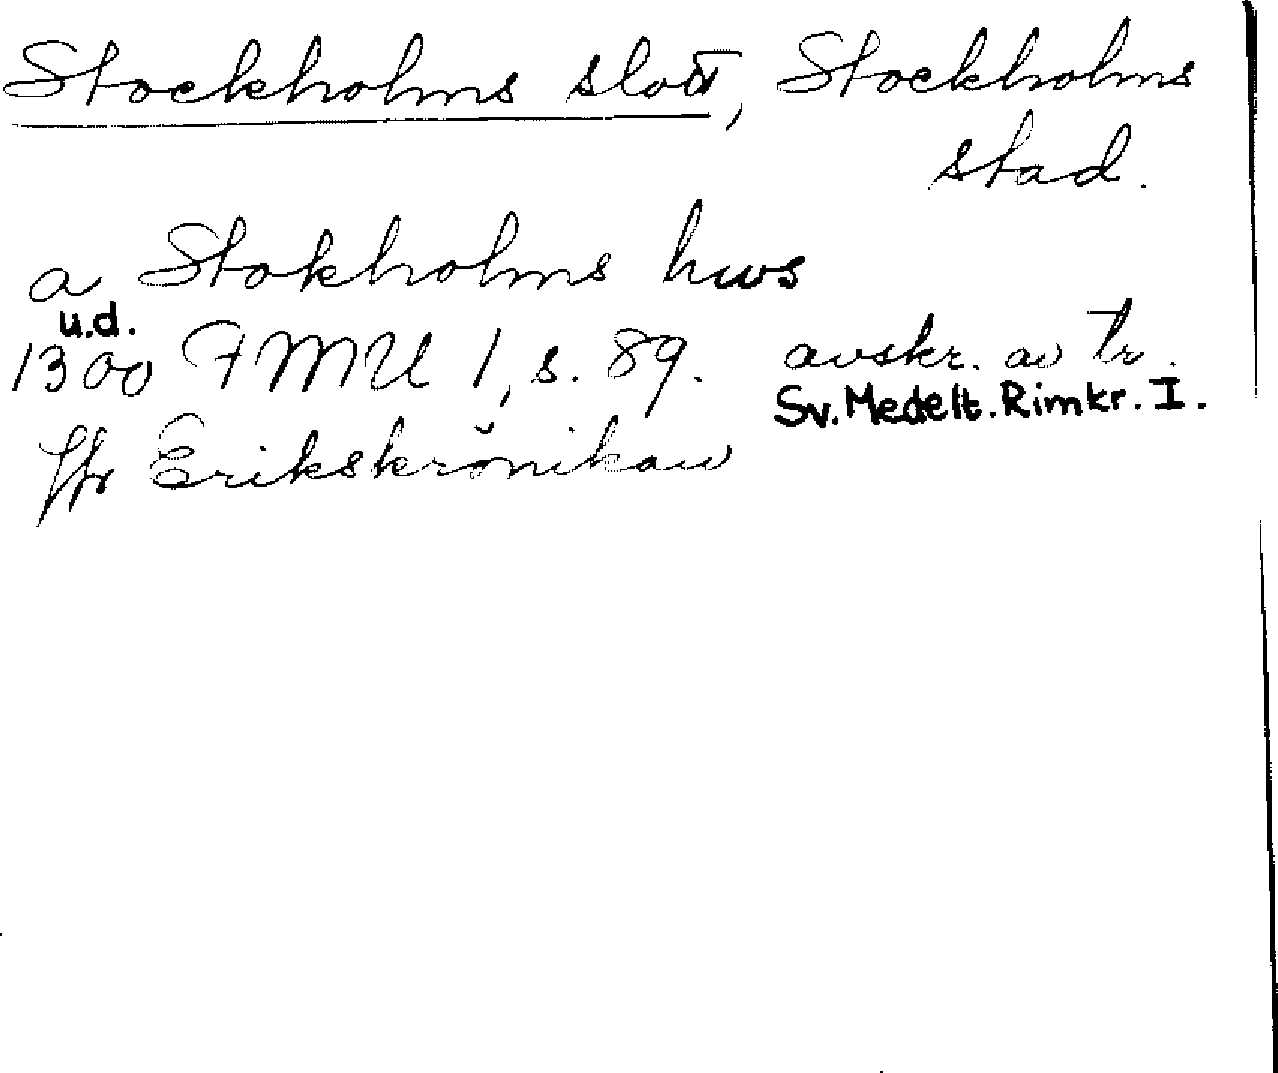 Stockholms slott, Stockholms
stad.
a Stokholms hws
u.d.
1300 FMU 1, s. 89. avskr. av tr.
Sv. Medelt. Rimkr. I.
Erikskrönikan